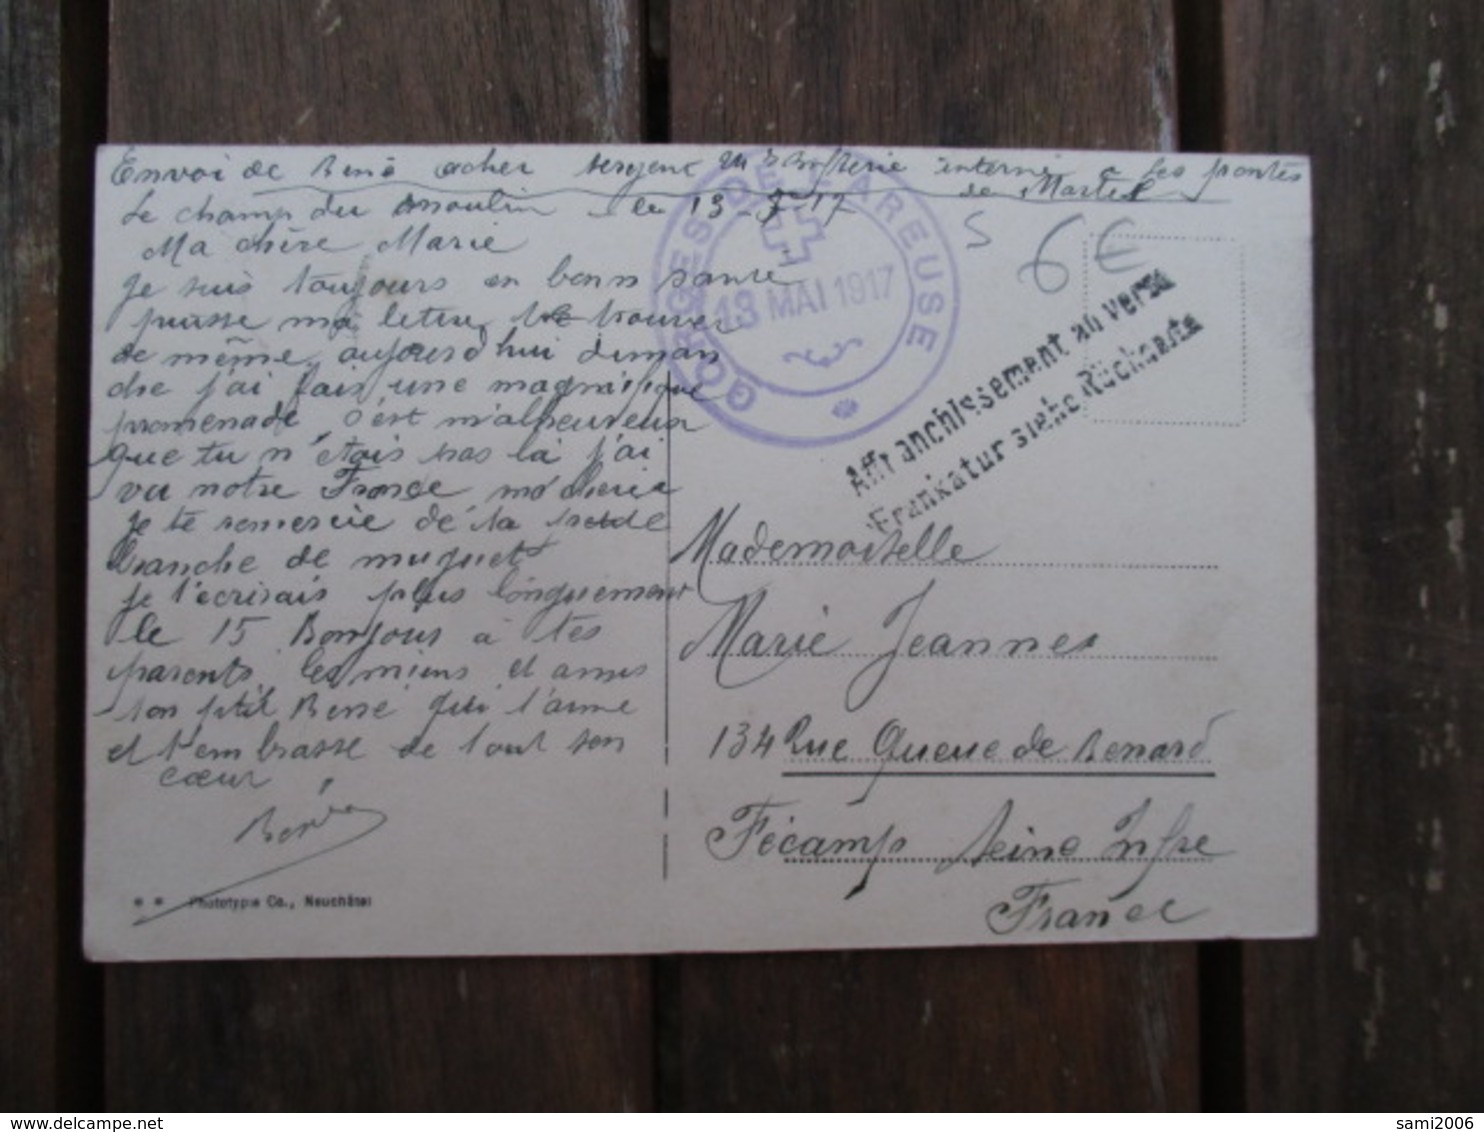 Envoi de René acher sergent interné a les pontes
de Martel
Le champ du moulin le 13-5-17
Ma chère Marie
Je suis toujours en bonn sante
puisse ma letre te trouver
de même aujourd'hui diman
che j'ai fais une magnifique
promenade, c'est malheureux
que tu n'étais pas là j'ai
vu notre France ma cherie
je te remercie de ta petite
branche de muguet
je t'écrirais plus longuement
le 15 Bonjour à tes
parents, les miens et amis
ton ptit René qui t'aime
et t'embrasse de tout son
cœur
René
** Phototypie Co., Neuchâtel
GORGES DE L'AREUSE
13 MAI 1917
S 6€
Affranchissement au verso
Frankatur siehe Rückseite
Mademoiselle
Marie Jeannes
134 Rue Queue de Renard
Fécamp Seine Infre
France
sami2006